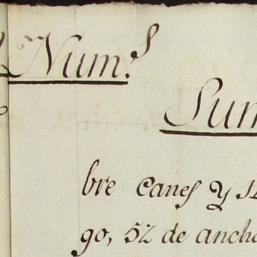 Num.s
Sum
bre Canes y 12
go, 52 de ancho